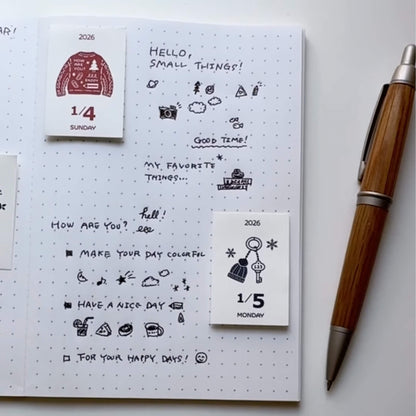 AR!
2026
HOW ARE YOU?
1/4
SUNDAY
HELLO,
SMALL THINGS!
GOOD TIME!
MY FAVORITE
THINGS...
HOW ARE YOU? hell!
2026
MAKE YOUR DAY COLORFUL
HAVE A NICE DAY
1/5
MONDAY
FOR YOUR HAPPY DAYS!